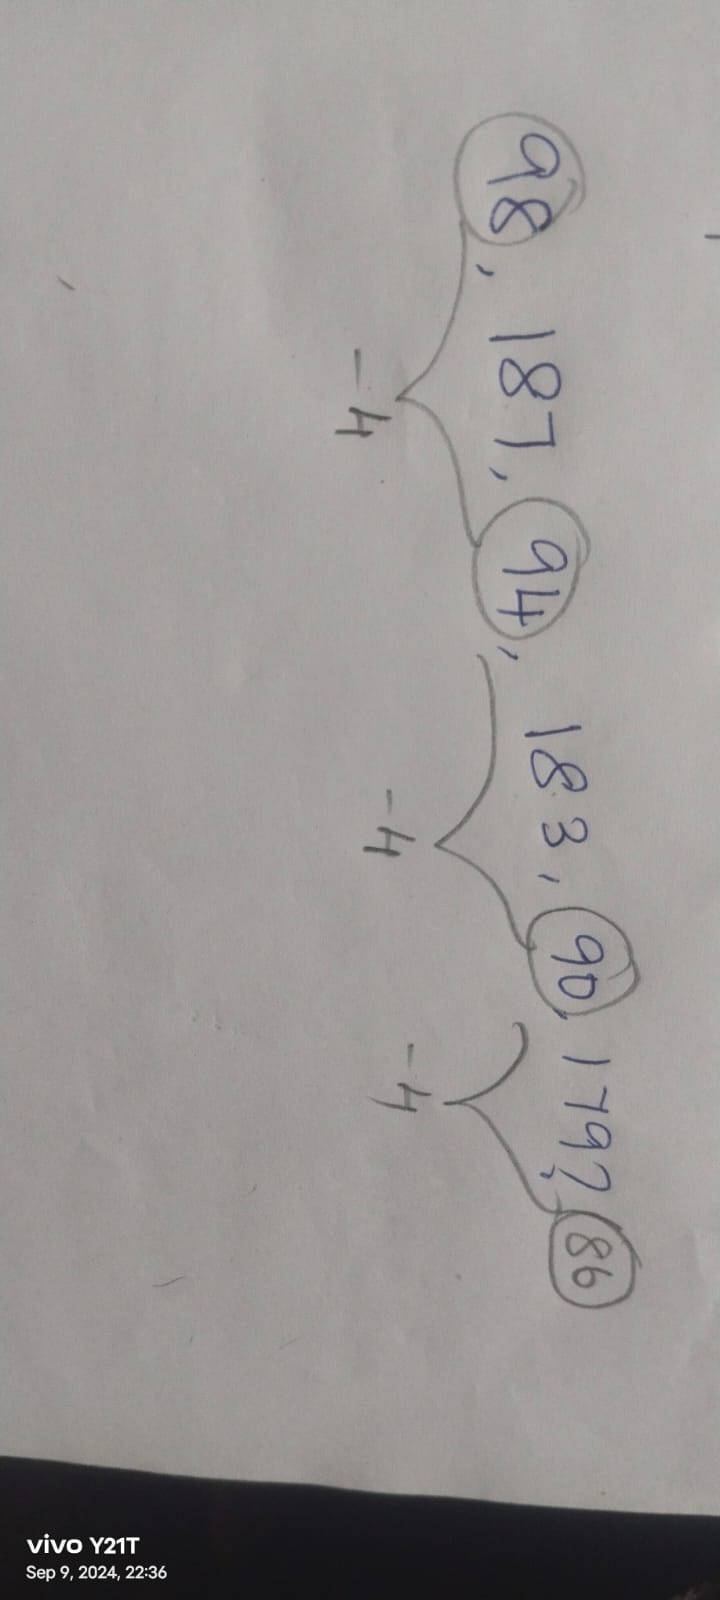 98, 187, 94, 183, 90, 179? 86
-4 -4 -4
vivo Y21T
Sep 9, 2024, 22:36